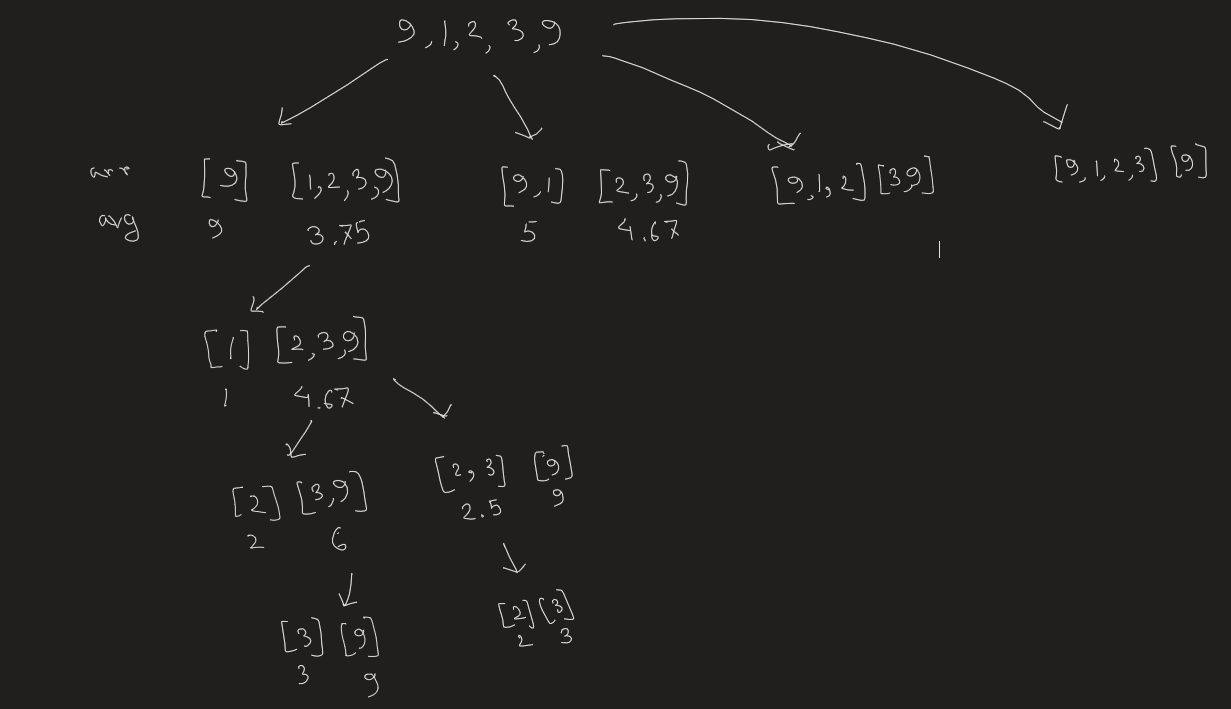 9,1,2,3,9
arr [9] [1,2,3,9] [9,1] [2,3,9] [9,1,2] [3,9] [9,1,2,3] [9]
avg 9 3.75 5 4.67
[1] [2,3,9]
1 4.67
[2] [3,9] [2,3] [9]
2 6 2.5 9
[3] [9] [2] [3]
3 9 2 3